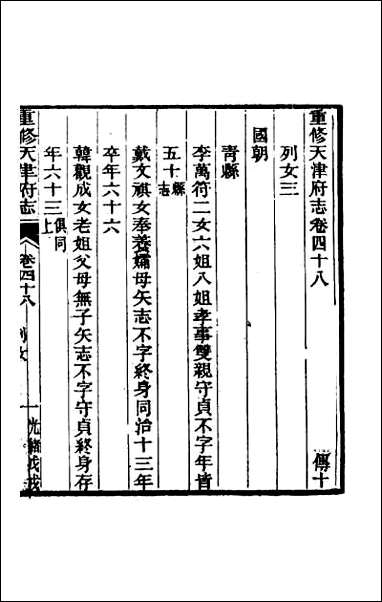 重修天津府志卷四十八
傳十
列女三
國朝
青縣
李萬符二女六姐八姐孝事雙親守貞不字年皆
五十縣志
戴文祺女奉養孀母矢志不字終身同治十三年
卒年六十六
韓觀成女老姐父母無子矢志不字守貞終身存
年六十三俱同上
重修天津府志
卷四十八
列女
一
光緒戊戌